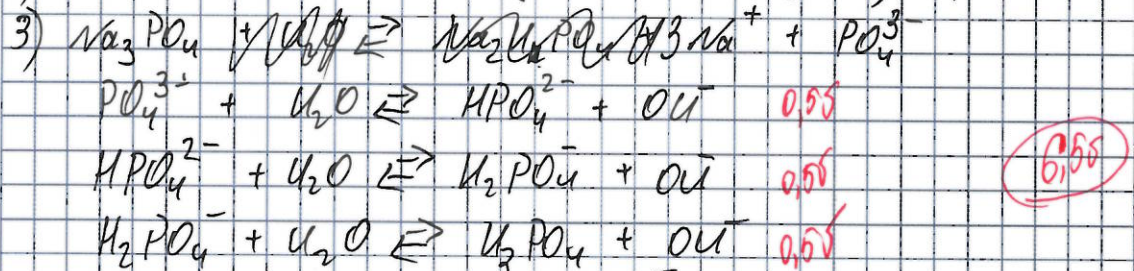 3) Na₃PO₄ ⇄ 3Na⁺ + PO₄³⁻
PO₄³⁻ + H₂O ⇄ HPO₄²⁻ + OH⁻ 0,5б
HPO₄²⁻ + H₂O ⇄ H₂PO₄⁻ + OH⁻ 0,5б 6,5б
H₂PO₄⁻ + H₂O ⇄ H₃PO₄ + OH⁻ 0,5б